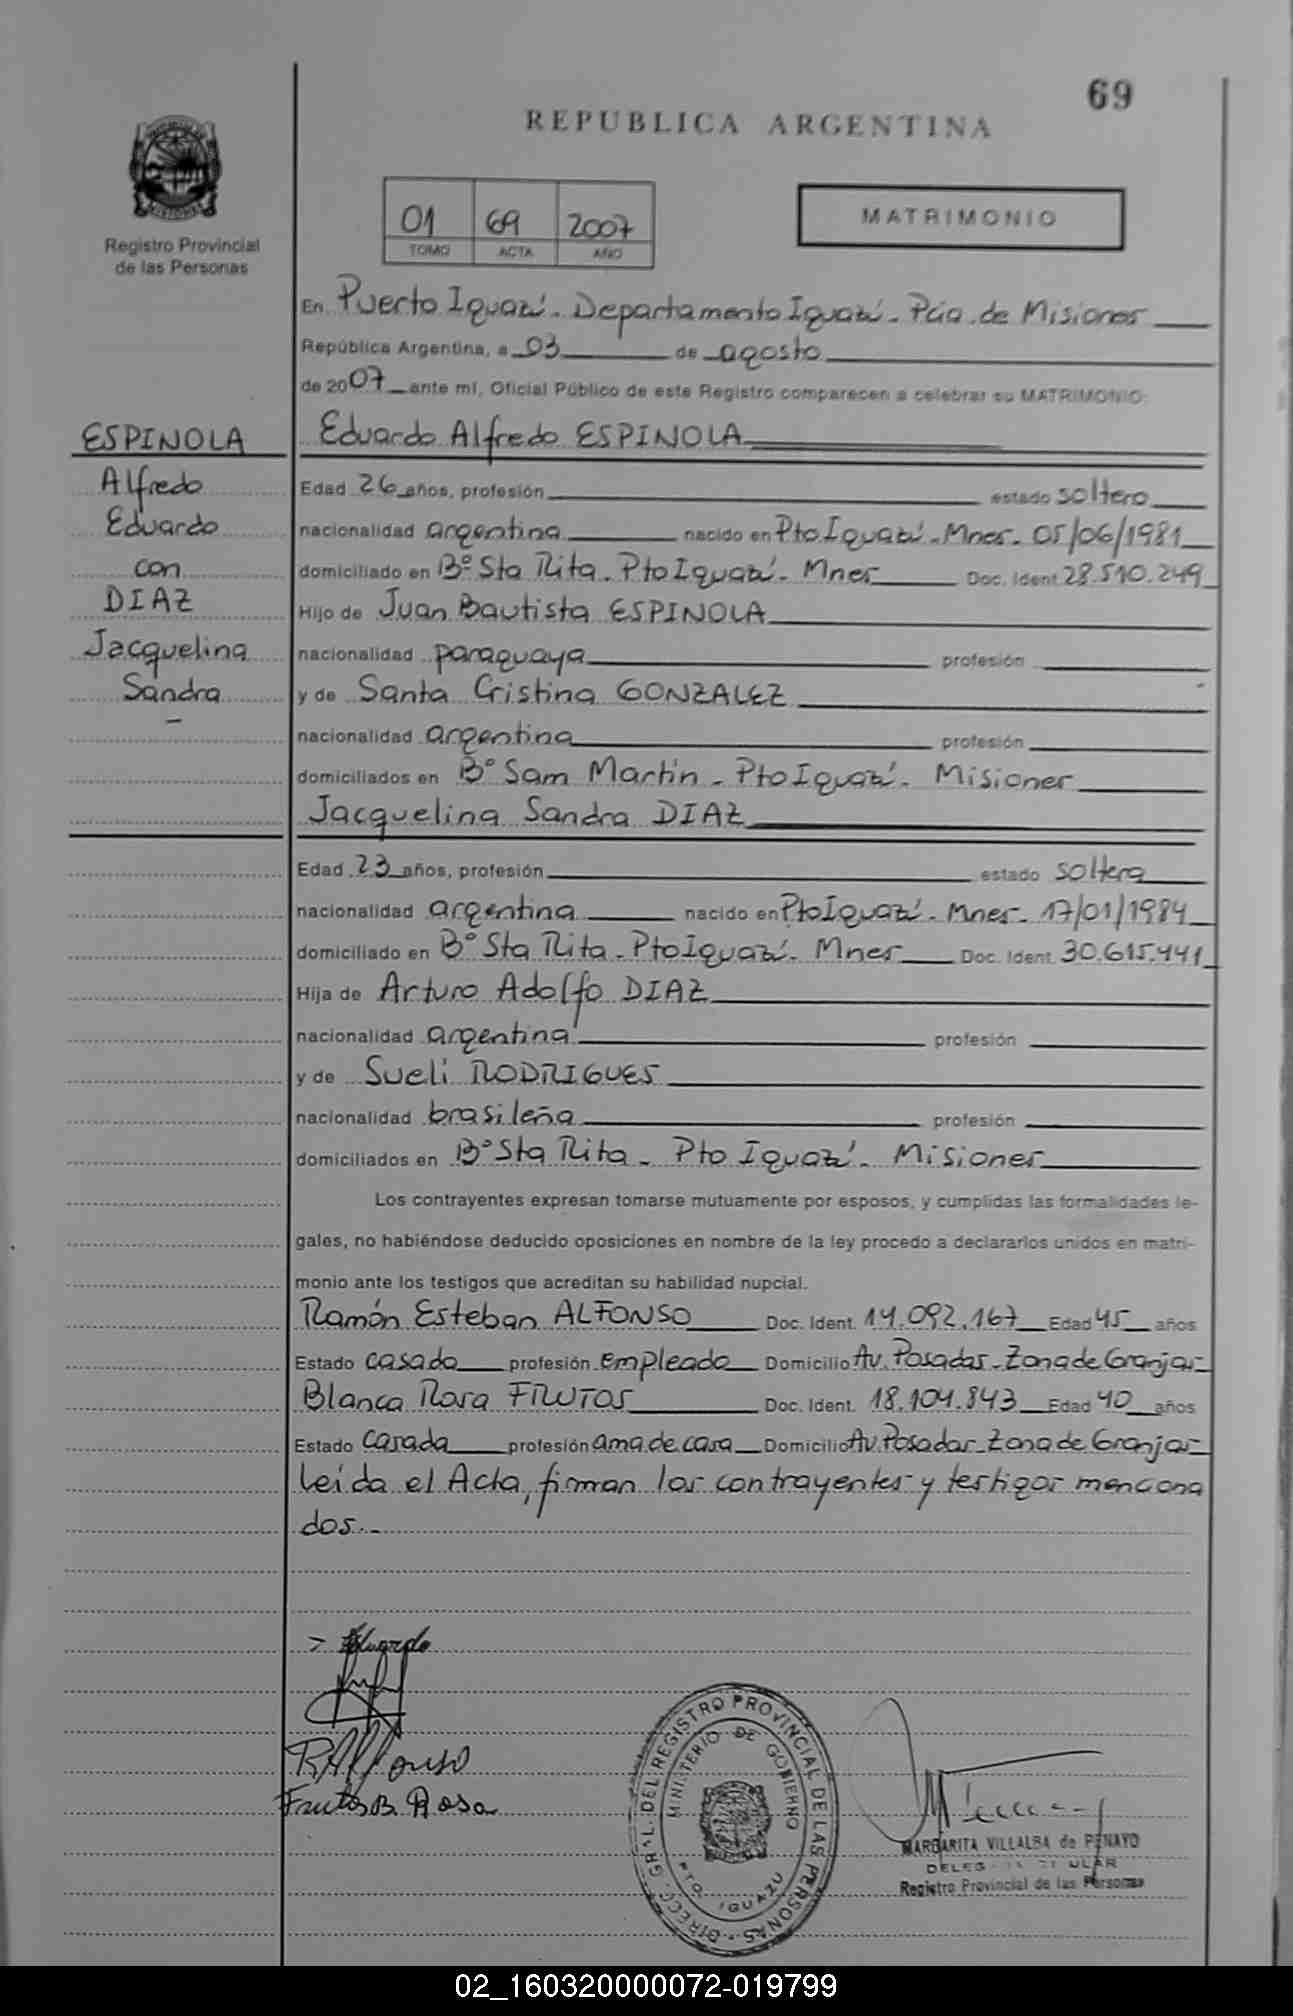 69
REPUBLICA ARGENTINA
Registro Provincial
de las Personas
01 69 2007
TOMO ACTA AÑO
MATRIMONIO
En Puerto Iguazú - Departamento Iguazú - Pcia. de Misiones
República Argentina, a 03 de agosto
de 2007 ante mí, Oficial Público de este Registro comparecen a celebrar su MATRIMONIO:
ESPINOLA
Alfredo
Eduardo
con
DIAZ
Jacquelina
Sandra
-
Eduardo Alfredo ESPINOLA
Edad 26 años, profesión estado soltero
nacionalidad argentina nacido en Pto Iguazú - Mnes - 05/06/1981
domiciliado en Bº Sta Rita - Pto Iguazú - Mnes Doc. Ident. 28.510.249
Hijo de Juan Bautista ESPINOLA
nacionalidad paraguaya profesión
y de Santa Cristina GONZALEZ
nacionalidad argentina profesión
domiciliados en Bº Sam Martín - Pto Iguazú - Misiones
Jacquelina Sandra DIAZ
Edad 23 años, profesión estado soltera
nacionalidad argentina nacido en Pto Iguazú - Mnes - 17/01/1984
domiciliado en Bº Sta Rita - Pto Iguazú - Mnes Doc. Ident. 30.615.441
Hija de Arturo Adolfo DIAZ
nacionalidad argentina profesión
y de Sueli RODRIGUES
nacionalidad brasileña profesión
domiciliados en Bº Sta Rita - Pto Iguazú - Misiones
Los contrayentes expresan tomarse mutuamente por esposos, y cumplidas las formalidades le-
gales, no habiéndose deducido oposiciones en nombre de la ley procedo a declararlos unidos en matri-
monio ante los testigos que acreditan su habilidad nupcial.
Ramón Esteban ALFONSO Doc. Ident. 14.092.167 Edad 45 años
Estado casado profesión empleado Domicilio Av. Posadas - Zona de Granjas -
Blanca Rosa FRUTOS Doc. Ident. 18.104.843 Edad 40 años
Estado casada profesión ama de casa Domicilio Av. Posadas - Zona de Granjas -
leída el Acta, firman los contrayentes y testigos menciona
dos.-
Eduardo
RAlfonso
Frutos B. Rosa
DIRECC. GRAL. DEL REGISTRO PROVINCIAL DE LAS PERSONAS
MINISTERIO DE GOBIERNO
PTO. IGUAZU
MARGARITA VILLALBA de PENAYO
Registro Provincial de las Personas
02_160320000072-019799